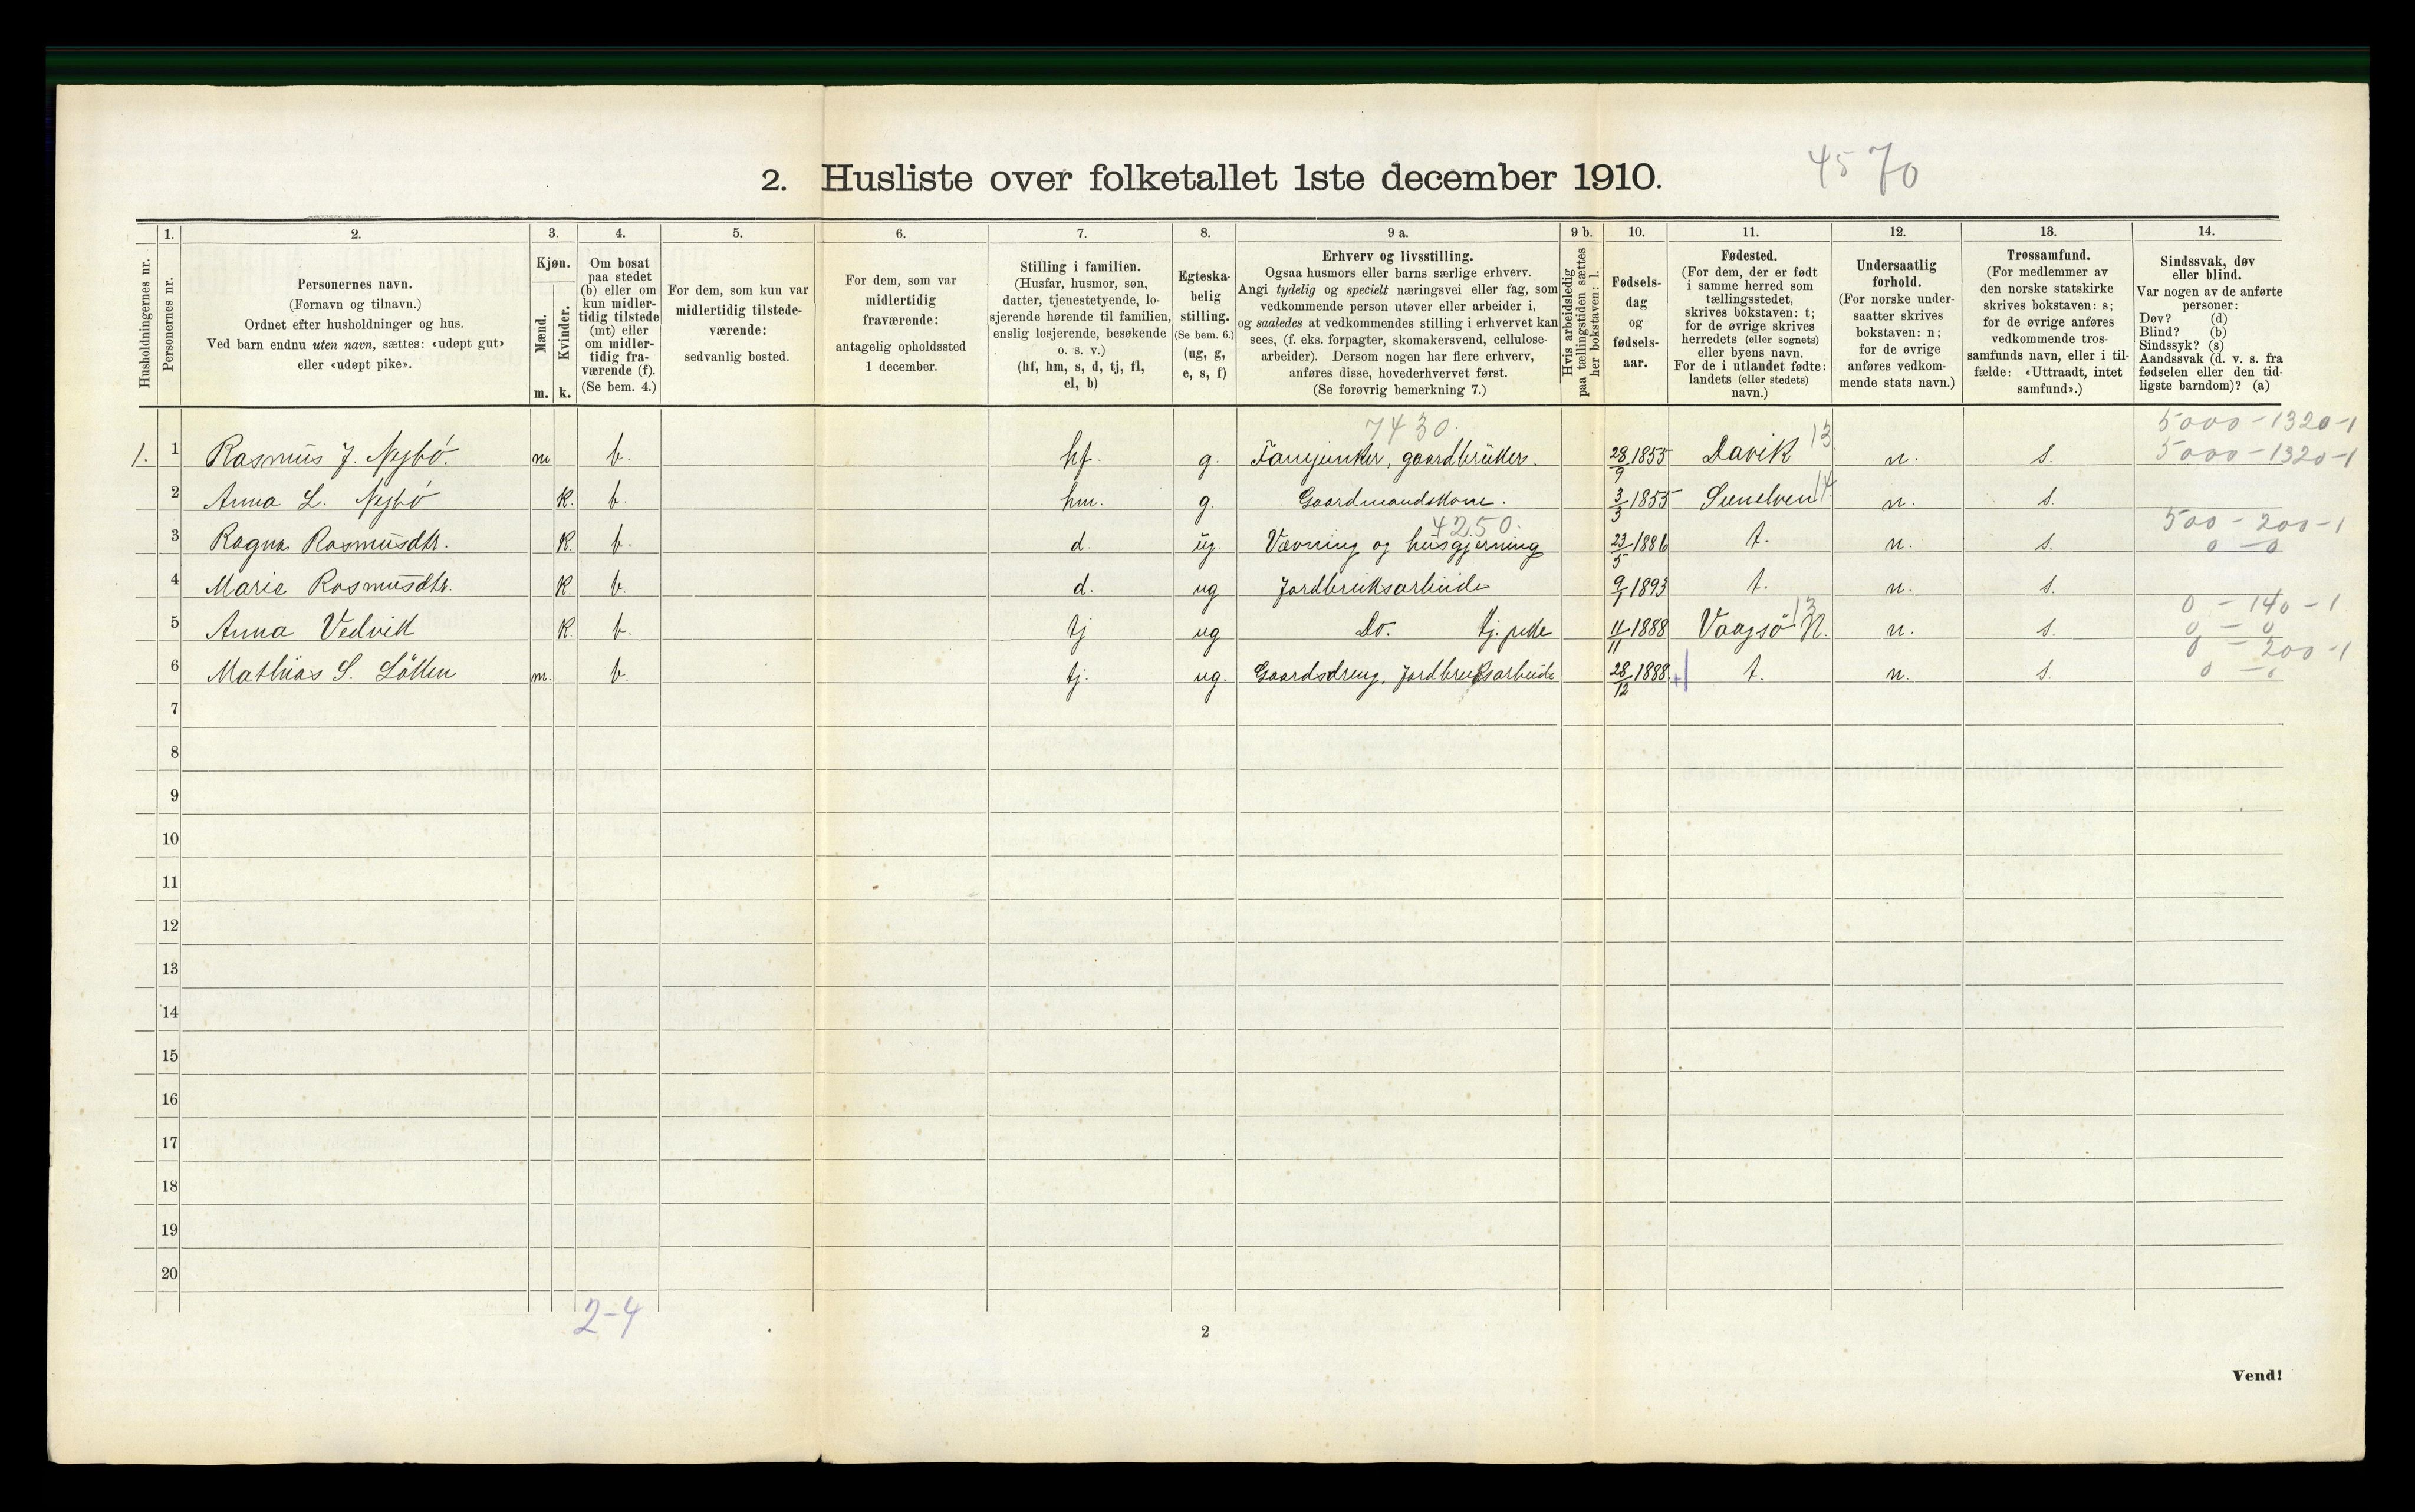 2. Husliste over folketallet 1ste december 1910.
45 70
Husholdningernes nr.
1.
Personernes nr.
2.
Personernes navn.
(Fornavn og tilnavn.)
Ordnet efter husholdninger og hus.
Ved barn endnu uten navn, sættes: «udøpt gut»
eller «udøpt pike».
3.
Kjøn.
Mænd.
Kvinder.
m. k.
4.
Om bosat
paa stedet
(b) eller om
kun midler-
tidig tilstede
(mt) eller
om midler-
tidig fra-
værende (f).
(Se bem. 4.)
5.
For dem, som kun var
midlertidig tilstede-
værende:
sedvanlig bosted.
6.
For dem, som var
midlertidig
fraværende:
antagelig opholdssted
1 december.
7.
Stilling i familien.
(Husfar, husmor, søn,
datter, tjenestetyende, lo-
sjerende hørende til familien,
enslig losjerende, besøkende
o. s. v.)
(hf, hm, s, d, tj, fl,
el, b)
8.
Egteska-
belig
stilling.
(Se bem. 6.)
(ug, g,
e, s, f)
9 a.
Erhverv og livsstilling.
Ogsaa husmors eller barns særlige erhverv.
Angi tydelig og specielt næringsvei eller fag, som
vedkommende person utøver eller arbeider i,
og saaledes at vedkommendes stilling i erhvervet kan
sees, (f. eks. forpagter, skomakersvend, cellulose-
arbeider). Dersom nogen har flere erhverv,
anføres disse, hovederhvervet først.
(Se forøvrig bemerkning 7.)
9 b.
Hvis arbeidsledig
paa tællingstiden sættes
her bokstaven: l.
10.
Fødsels-
dag
og
fødsels-
aar.
11.
Fødested.
(For dem, der er født
i samme herred som
tællingsstedet,
skrives bokstaven: t;
for de øvrige skrives
herredets (eller sognets)
eller byens navn.
For de i utlandet fødte:
landets (eller stedets)
navn.)
12.
Undersaatlig
forhold.
(For norske under-
saatter skrives
bokstaven: n;
for de øvrige
anføres vedkom-
mende stats navn.)
13.
Trossamfund.
(For medlemmer av
den norske statskirke
skrives bokstaven: s;
for de øvrige anføres
vedkommende tros-
samfunds navn, eller i til-
fælde: «Uttraadt, intet
samfund».)
14.
Sindssvak, døv
eller blind.
Var nogen av de anførte
personer:
Døv? (d)
Blind? (b)
Sindssyk? (s)
Aandssvak (d. v. s. fra
fødselen eller den tid-
ligste barndom)? (a)
7430. 5000-1320-1
1. 1 Rasmus J. Nybö. m b. hf. g. Fanejunker, gaardbrüker. 28/9 1855 Davik 13 n. s. 5000-1320-1
2 Anna L. Nybö K. b. hm. g. Gaardmandskone. 3/3 1855 Sunelven 14 n. s.
4250. 500-200-1
3 Ragna Rasmusdtr. K. b. d. ug. Vævning og husgjerning 23/5 1886 t. n. s. 0-0
4 Marie Rasmusdtr. K. b. d. ug Jordbruksarbeide 9/1 1893 t. n. s.
0-140-1
5 Anna Vedvik K. b. tj ug Do. tj. pike 11/11 1888 Vaagsö N. 13 n. s. 0-0
0-200-1
6 Mathias S. Lötten m. b. tj. ug. Gaardsdreng, Jordbruksarbeide 28/12 1888. t. n. s. 0-0
7
8
9
10
11
12
13
14
15
16
17
18
19
20
2-4
2
Vend!